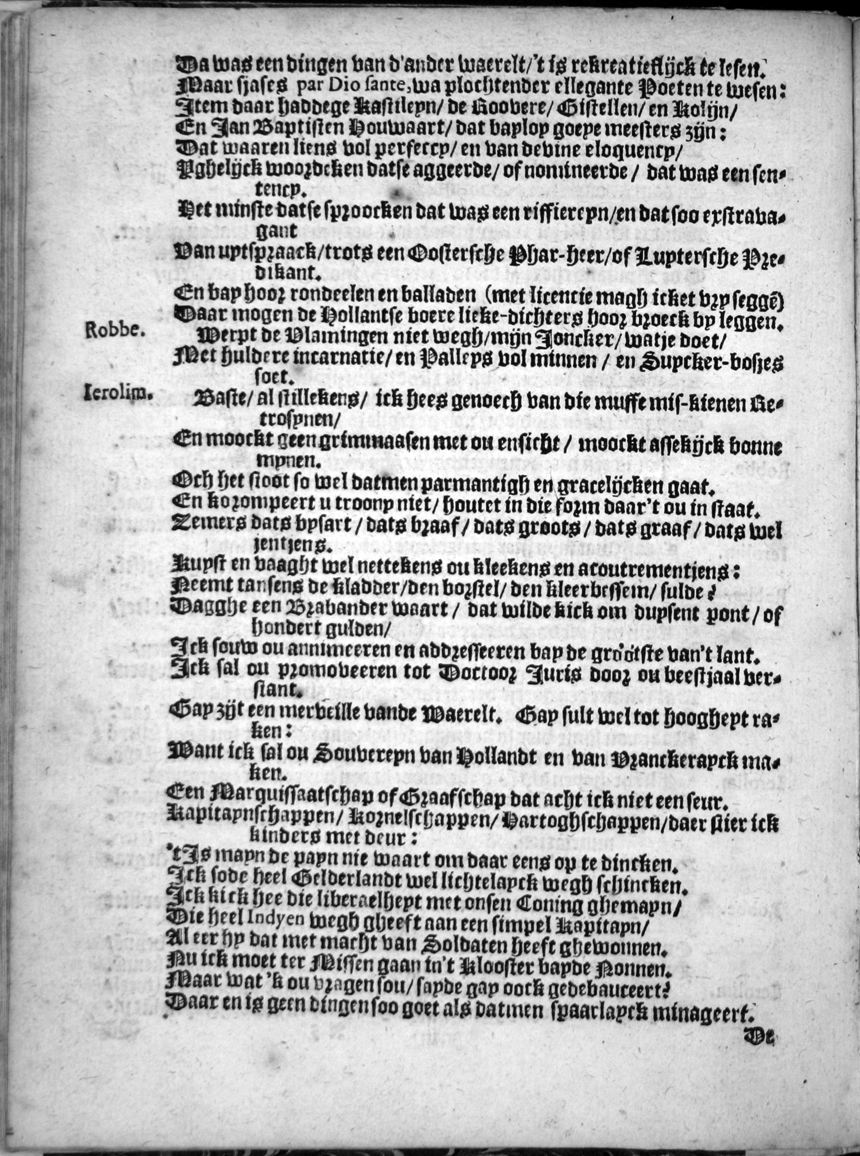 Da was een dingen van d'ander waerelt/'t is rekreatieflijck te lesen.
Maar sjases par Dio sante, wa plochtender ellegante Poeten te wesen:
Item daar haddege Kastileyn/ de Roovere/ Gistellen/ en Kolijn/
En Jan Baptisten Houwaart/ dat bayloy goeye meesters zijn:
Dat waaren liens vol perfeccy/ en van devine eloquency/
Yghelijck woordeken datse aggeerde/ of nomineerde / dat was een sen-
tency.
Het minste datse sproocken dat was een riffiereyn/en dat soo exstrava-
gant
Van uytspraack/trots een Oostersche Phar-heer/of Luytersche Pre-
dikant.
En bay hoor rondeelen en balladen (met licencie magh icket vry seggē)
Daar mogen de Hollantse boere lieke-dichters hoor broeck by leggen.
Robbe. Werpt de Vlamingen niet wegh/mijn Joncker/watje doet/
Met huldere incarnatie/ en Palleys vol minnen / en Suycker-bosjes
soet.
Ierolim. Baste/ al stillekens/ ick hees genoech van die muffe mis-kienen Re-
trosynen/
En moockt geen grimmaasen met ou ensicht / moockt assekijck bonne
mynen.
Och het stoot so wel datmen parmantigh en gracelijcken gaat.
En korompeert u troony niet/ houtet in die form daar't ou in staat.
Zemers dats bysart / dats braaf / dats groots / dats graaf / dats wel
jentjens.
Kuyst en vaaght wel nettekens ou kleekens en acoutrementjens:
Neemt tansens de kladder/den borstel/ den kleerbessem/ sulde?
Dagghe een Brabander waart / dat wilde kick om duysent pont / of
hondert gulden/
Ick souw ou annimeeren en addresseeren bay de grootste van't lant.
Ick sal ou promoveeren tot Doctoor Juris door ou beestjaal ver-
stant.
Gay zijt een merveille vande Waerelt. Gay sult wel tot hoogheyt ra-
ken:
Want ick sal ou Souvereyn van Hollandt en van Vranckerayck ma-
ken.
Een Marquissaatschap of Graafschap dat acht ick niet een seur.
Kapitaynschappen/ Kornelschappen/ Hartoghschappen/daer stier ick
kinders met deur:
't Is mayn de payn nie waart om daar eens op te dincken.
Ick sode heel Gelderlandt wel lichtelayck wegh schincken.
Ick kick hee die liberaelheyt met onsen Coning ghemayn/
Die heel Indyen wegh gheeft aan een simpel Kapitayn/
Al eer hy dat met macht van Soldaten heeft ghewonnen.
Nu ick moet ter Missen gaan in't Klooster bayde Nonnen.
Maar wat 'k ou vragen sou/ sayde gay oock gedebauceert?
Daar en is geen dingen soo goet als datmen spaarlayck minageert.
De